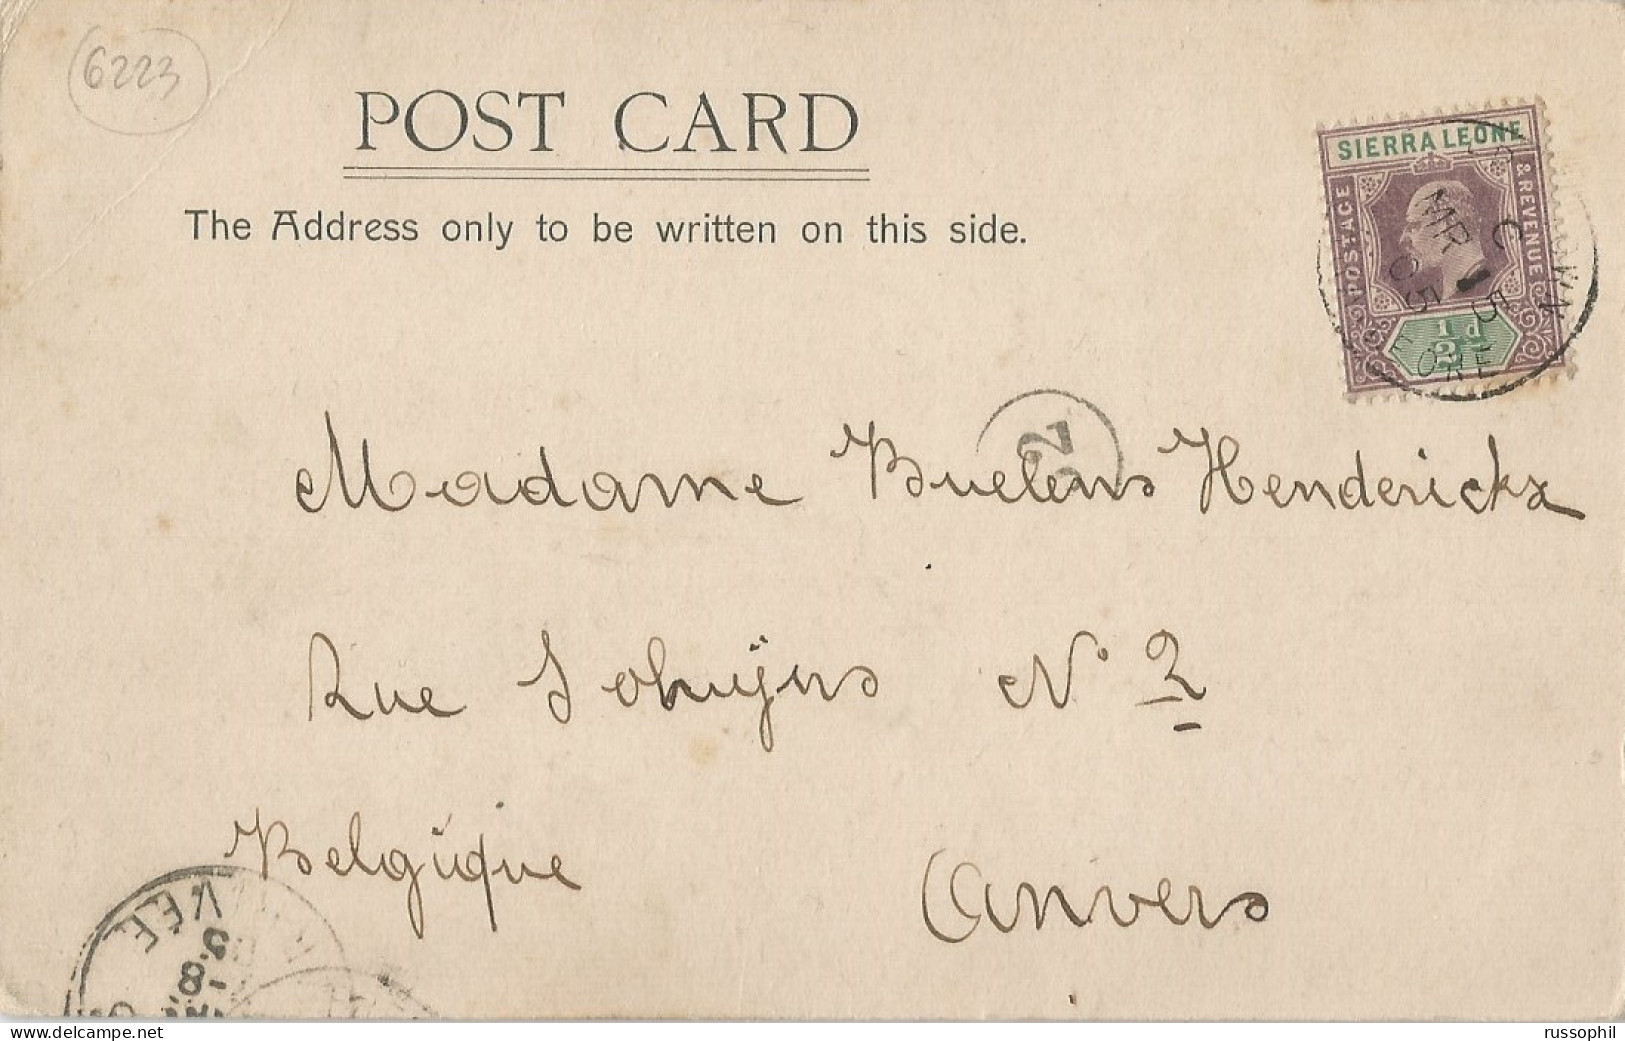 6223
POST CARD
The Address only to be written on this side.
SIERRA LEONE
POSTAGE
& REVENUE
1/2 d
C
MR 15
05
Madame Buelens Henderickx
Rue N° 2
Belgique
Anvers
VEE
russophil
https://www.delcampe.net